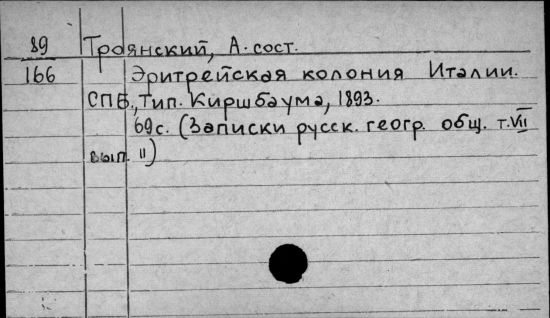 89 Троянский, А. сост.
166 Эритрейская колония Италии.
СПБ., Тип. Киршбаума, 1893.
69с. (Записки русск. геогр. общ. т. VII
вып. II)